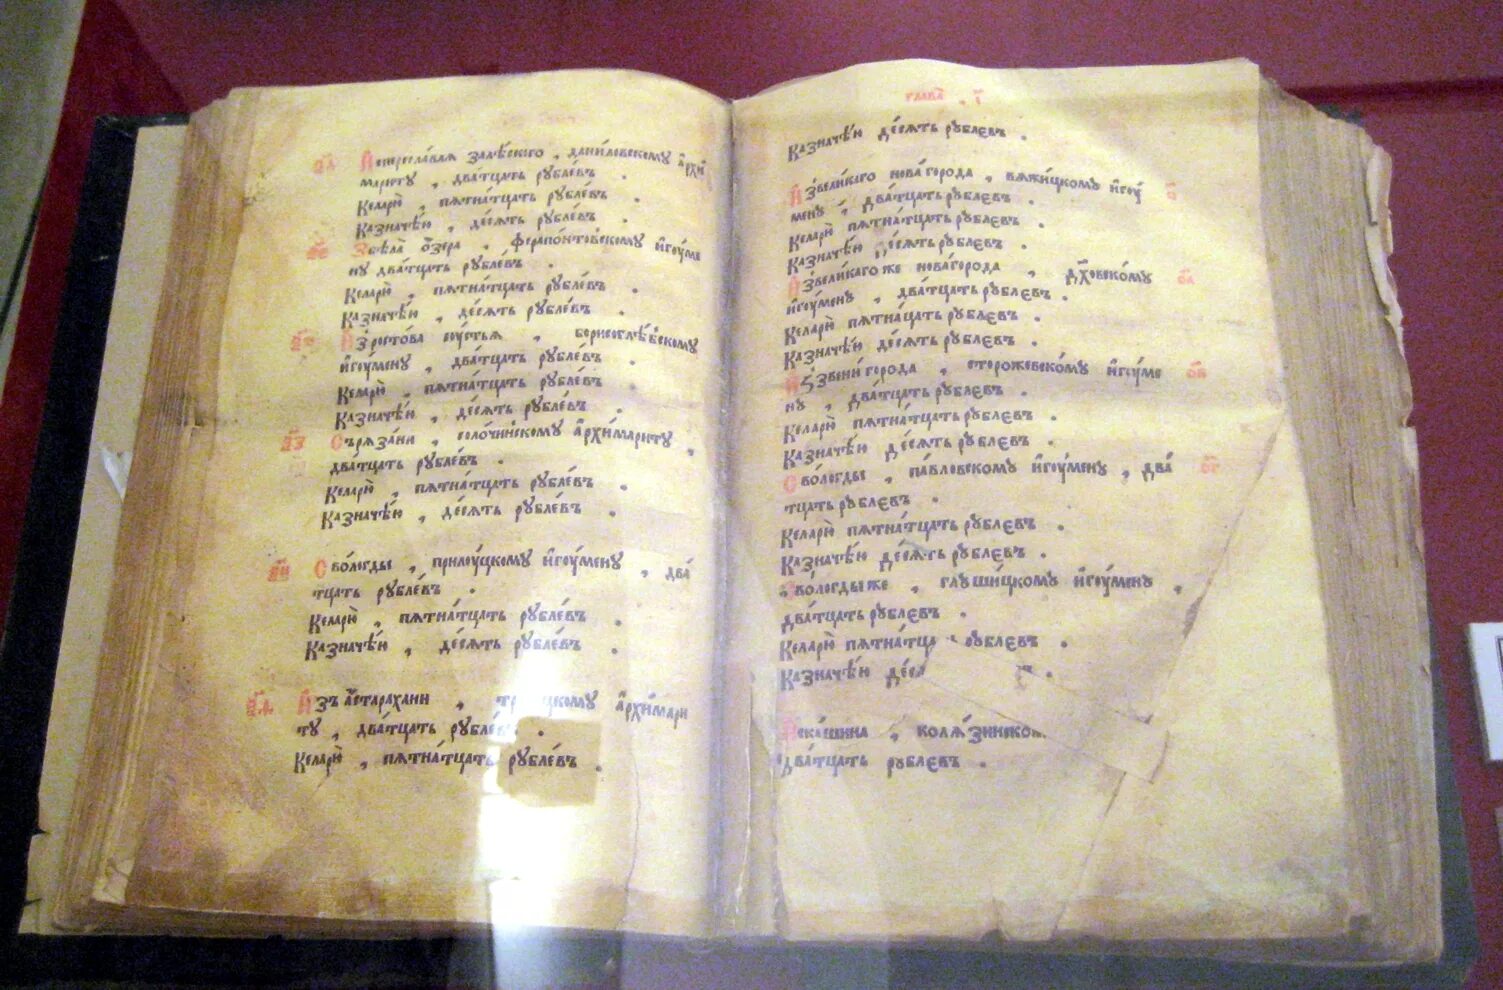 Переславля залѣсского , даниловскому а҆рхи
мариту , два́тцать рубле́въ .
Келарю̀ , пятна́тцать рубле́въ .
Казначе́ю , де́сять рубле́въ .
Збѣла о҆зера , ферапо́нтовскому и҆гоуме
ну два́тцать рубле́въ .
Келарю̀ , пятна́тцать рубле́въ .
Казначе́ю , де́сять рубле́въ .
И҆зросто́ва соустья , борисоглѣ́бскому
и҆гоу́мену , два́тцать рубле́въ .
Келарю̀ , пятна́тцать рубле́въ .
Казначе́ю , де́сять рубле́въ .
Съряза́ни , соло́чинскому а҆рхи́мариту ,
два́тцать рубле́въ .
Келарю̀ , пятна́тцать рубле́въ .
Казначе́ю , де́сять рубле́въ .
Сво́логды , прилоу́цкому и҆гоу́мену , два́
тцать рубле́въ .
Келарю̀ , пятна́тцать рубле́въ .
Казначе́ю , де́сять рубле́въ .
И҆зъ а҆старахани , а҆рхи́мари
ту , два́тцать рубле́въ .
Келарю̀ , пятна́тцать рубле́въ .
глава̀
Казначѣ́ю де́сять рублєвъ .
И҆звели́каго нова́города , вя́жицкому и҆гоу́
мену , два́тцать рублєвъ .
Келарю̀ пятна́тцать рублєвъ .
Казначѣ́ю де́сять рублєвъ .
И҆звели́кагоже нова́города , дх҃о́вскому
и҆гоу́мену , два́тцать рублєвъ .
Келарю̀ пятна́цать рублєвъ .
Казначѣ́ю де́сять рублєвъ .
И҆ззвени́города , сторожевско́му и҆гоу́ме
ну , два́тцать рублєвъ .
Келарю̀ пятна́тцать рублєвъ .
Казначѣ́ю де́сять рублєвъ .
Сво́логды , па́вловскому и҆гоу́мену , два́
тцать рублєвъ .
Келарю̀ пятна́тцать рублєвъ .
Казначѣ́ю де́сять рублєвъ .
Сво́логдыже , глуши́цкому и҆гоу́мену ,
два́тцать рублєвъ .
Келарю̀ пятна́тца рублєвъ .
Казначѣ́ю де́ся .
И҆ска́шина , коля́зинском
два́тцать рублєвъ .